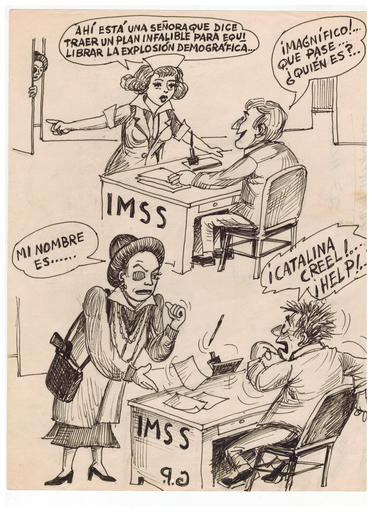 AHÍ ESTÁ UNA SEÑORA QUE DICE
TRAER UN PLAN INFALIBLE PARA EQUI
LIBRAR LA EXPLOSIÓN DEMOGRÁFICA...
¡MAGNÍFICO!...
QUE PASE...
¿QUIEN ES?..
IMSS
MI NOMBRE
ES......
¡CATALINA
CREEL!...
¡HELP!..
IMSS